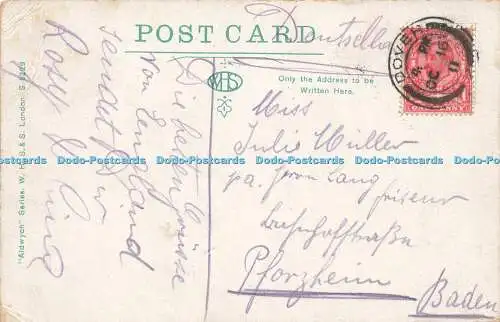 POST CARD
Deutschland
WHS
Only the Address to be
Written Here.
DOVER
OC 16
11
ONE PENNY
Die besten Grüsse
von England
sendet Dir
Rosy
"Aldwych" Series. W. H. S. & S. London S
Miss
Julie Müller
pa. Herrn Lang
friseur
Bahnhofstraße
Pforzheim
Baden
Dodo-Postcards Dodo-Postcards Dodo-Postcards Dodo-Postcards Dodo-Postcards